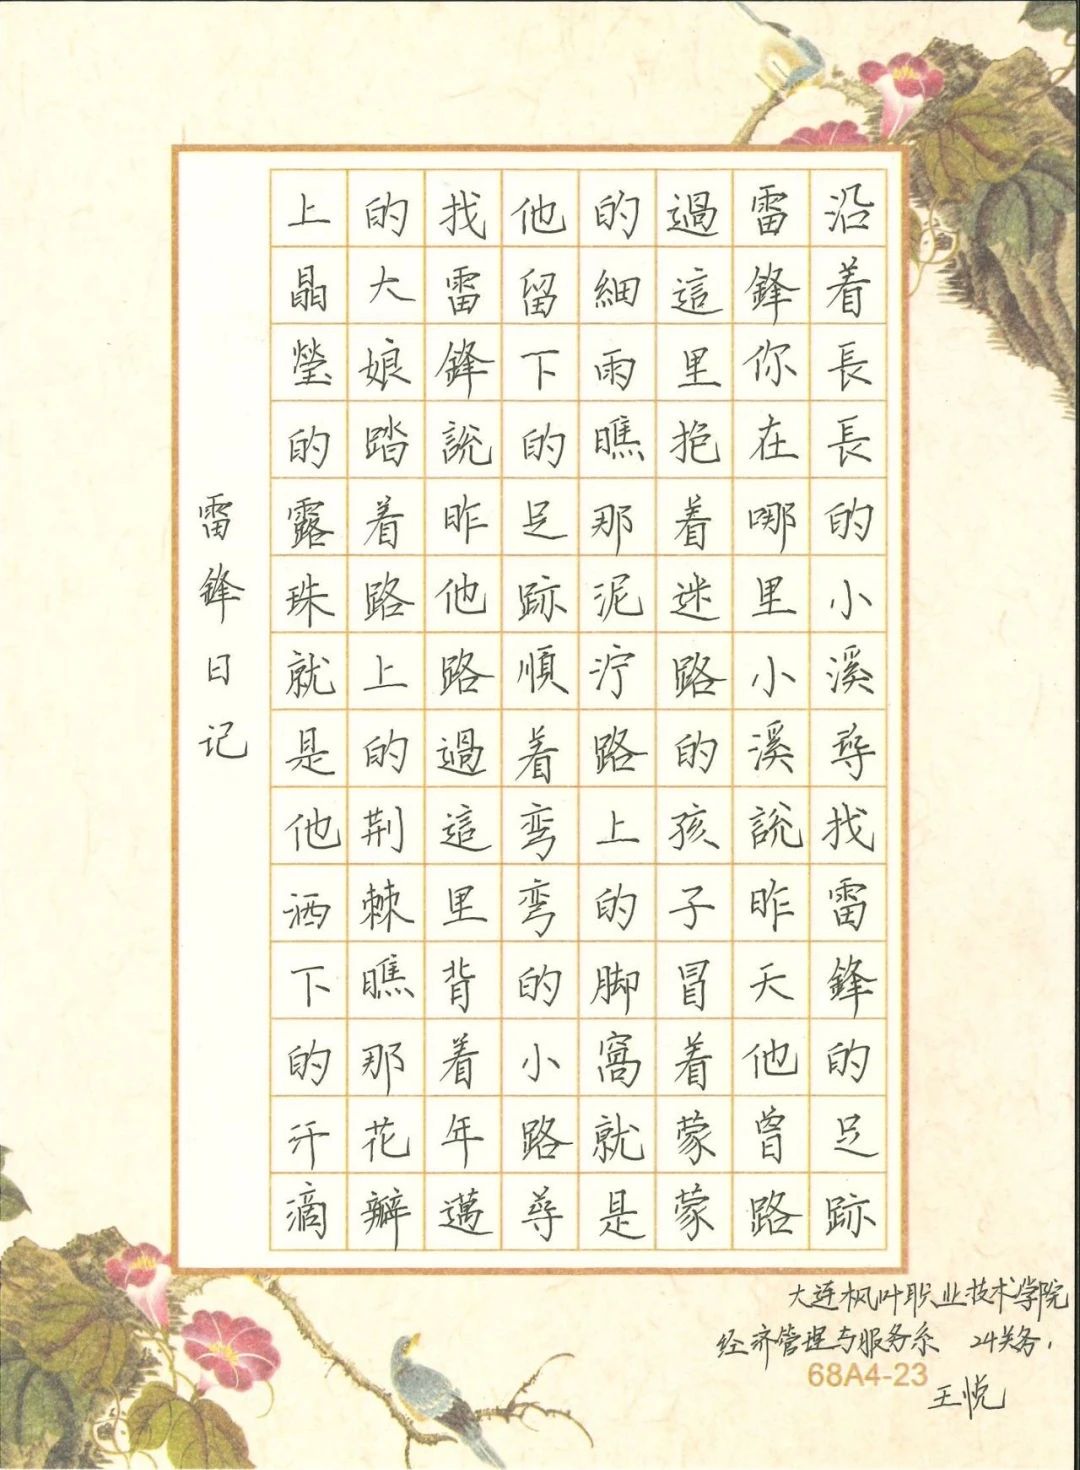 沿着長長的小溪尋找雷鋒的足跡
雷鋒你在哪里小溪說昨天他曾路
過這里抱着迷路的孩子冒着蒙蒙
的細雨瞧那泥泞路上的脚窩就是
他留下的足跡順着弯弯的小路尋
找雷鋒說昨他路過這里背着年邁
的大娘踏着路上的荆棘瞧那花瓣
上晶瑩的露珠就是他洒下的汗滴
雷鋒日记
大连枫叶职业技术学院
经济管理与服务系 24关务，
68A4-23
王悦